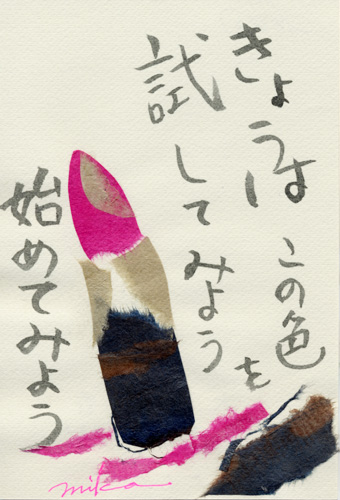 きょうは この色を
試してみよう
始めてみよう
mika